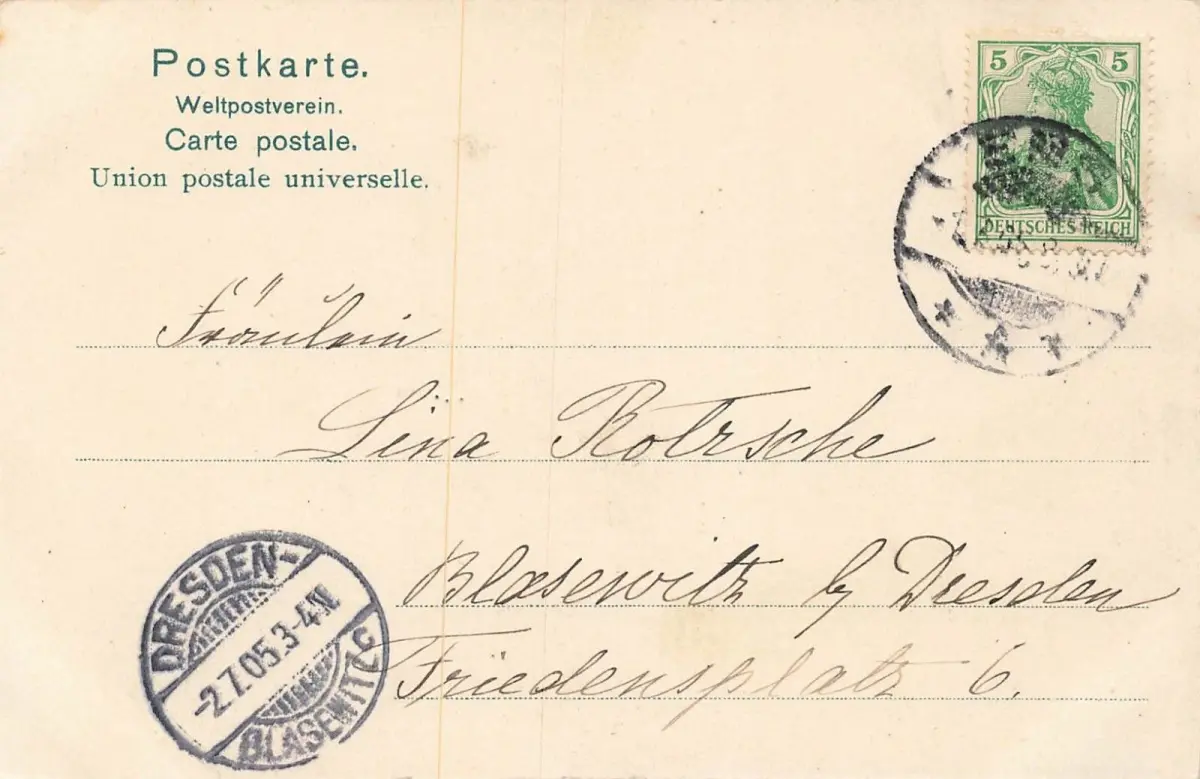 Postkarte.
Weltpostverein.
Carte postale.
Union postale universelle.
5 5
DEUTSCHES REICH
Fräulein
Lina Rotzsche
Blasewitz b/ Dresden
Friedensplatz 6.
DRESDEN-
-2.7.05.3-4N
BLASEWITZ c